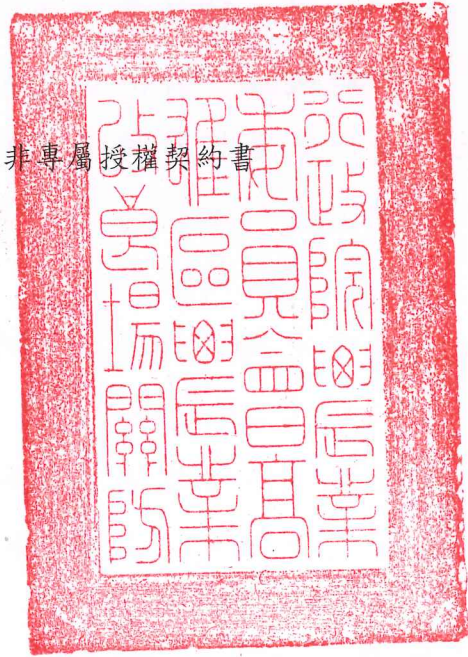 非專屬授權契約書
行政院農業
委員會高
雄區農業
改良場關防